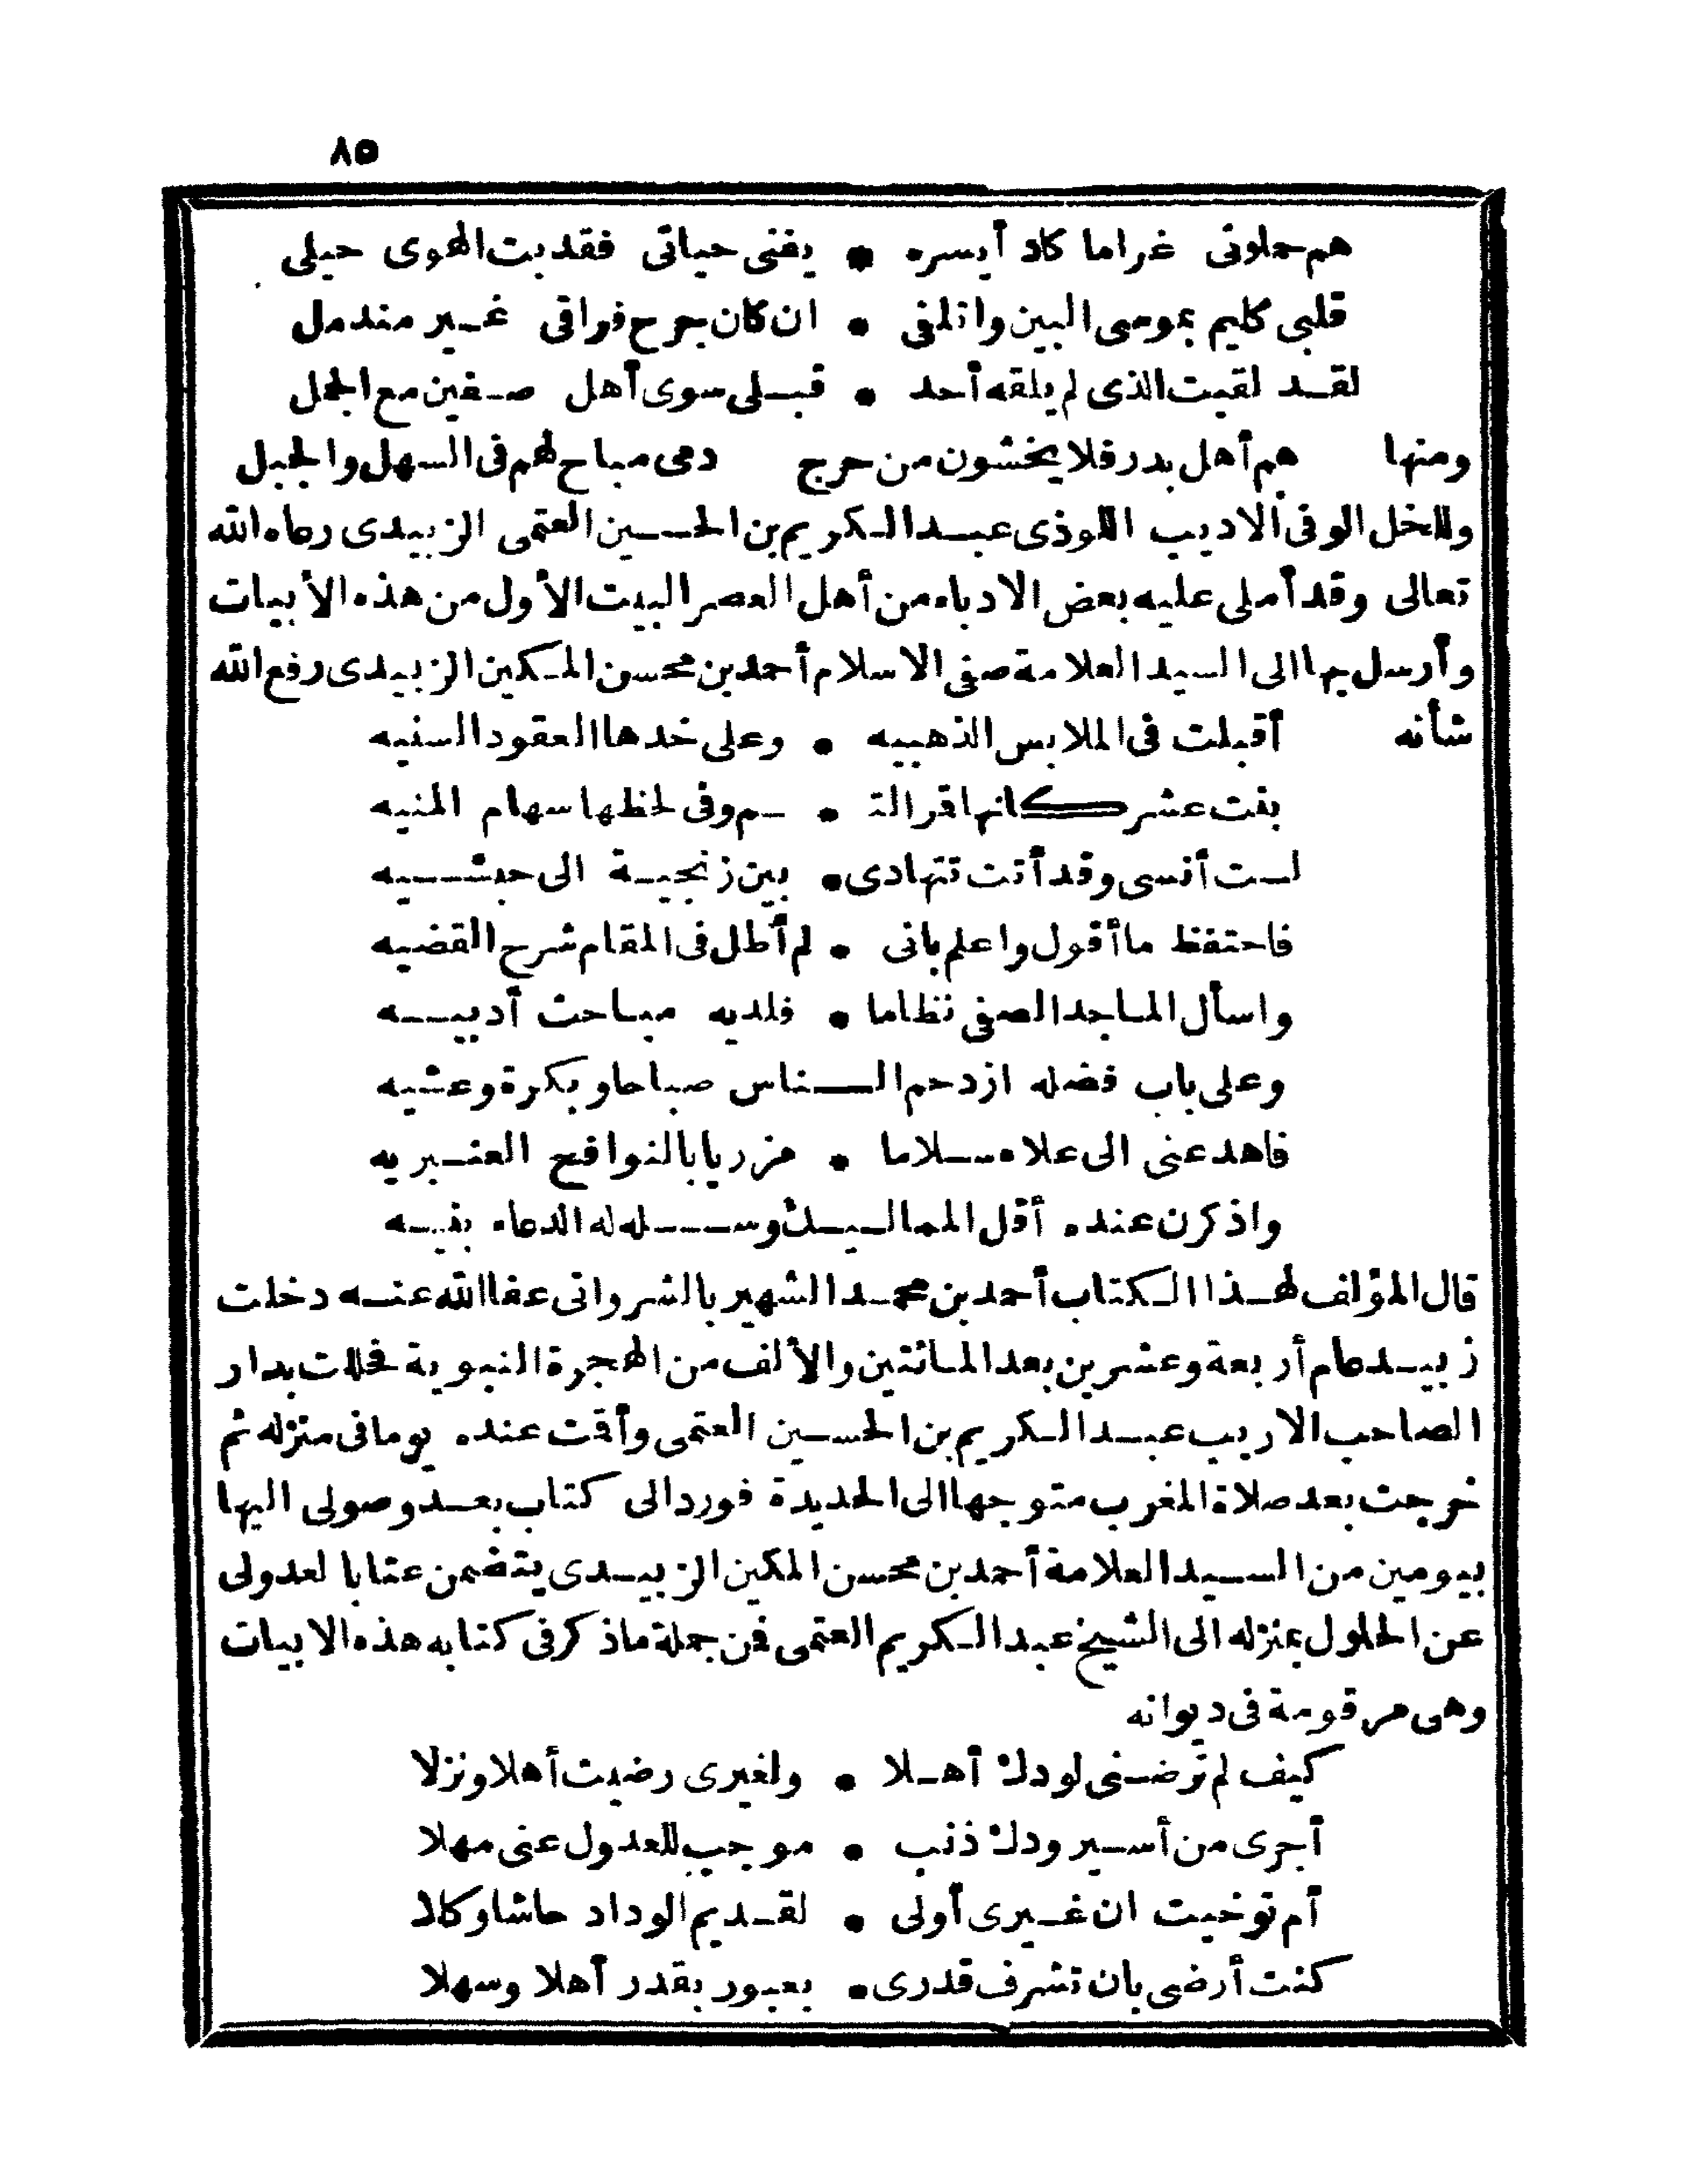 ٨٥
هم حملونى غراما كاد أيسره * يفنى حياتى فقد بت الهوى حيلى
قلبى كليم بموسى البين وا تلفى * ان كان جرح فراقى غير مندمل
لقد لقيت الذى لم يلقه أحد * قبلى سوى أهل صفين مع الجمل
ومنها هم أهل بدر فلا يخشون من حرج دمى مباح لهم فى السهل والجبل
وللخل الوفى الاديب اللوذى عبد الكريم بن الحسين العتمى الزبيدى رعاه الله
تعالى وقد أملى عليه بعض الادباء من أهل العصر البيت الأول من هذه الأبيات
وأرسل بها الى السيد العلامة صفى الاسلام أحمد بن محسن المكين الزبيدى رفع الله
شأنه أقبلت فى الملابس الذهبيه * وعلى خدها العقود السنيه
بنت عشر كانها قر الت * ـم وفى لحظها سهام المنيه
لست أنسى وقد أتت تتهادى * بين زنجية الى حبشيه
فاحتفظ ما أقول واعلم بانى * لم أطل فى المقام شرح القضيه
واسأل الماجد الصفى نظاما * فلديه مباحث أدبيه
وعلى باب فضله ازدحم الناس صباحا وبكرة وعشيه
فاهد عنى الى علاه سلاما * مزريا بالنوافح العنبريه
واذكرن عنده أقل المماليك وسله له الدعاء بنيه
قال المؤلف لهذا الكتاب أحمد بن محمد الشهير بالشروانى عفا الله عنه دخلت
زبيد عام أربعة وعشرين بعد المائتين والألف من الهجرة النبوية فحللت بدار
الصاحب الاريب عبد الكريم بن الحسين العتمى وأقت عنده يوما فى منزله ثم
خرجت بعد صلاة المغرب متوجها الى الحديدة فورد الى كتاب بعد وصولى اليها
بيومين من السيد العلامة أحمد بن محسن المكين الزبيدى يتضمن عتابا لعدولى
عن الحلول بمنزله الى الشيخ عبد الكريم العتمى فن جملة ماذكر فى كتابه هذه الابيات
وهى مرقومة فى ديوانه
كيف لم ترضنى لودك أهلا * ولغيرى رضيت أهلا ونزلا
أجرى من أسير ودك ذنب * موجب للعدول عنى مهلا
أم توخيت ان غيرى أولى * لقديم الوداد حاشا وكلا
كنت أرضى بان تشرف قدرى * بعبور بقدر أهلا وسهلا